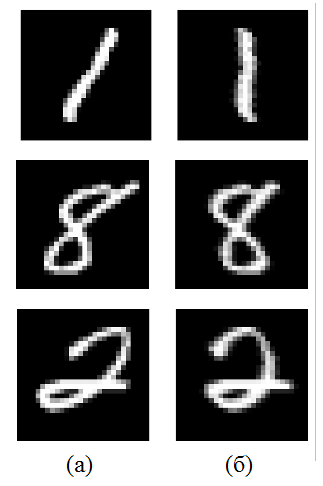 1 1
8 8
2 2
(а) (б)